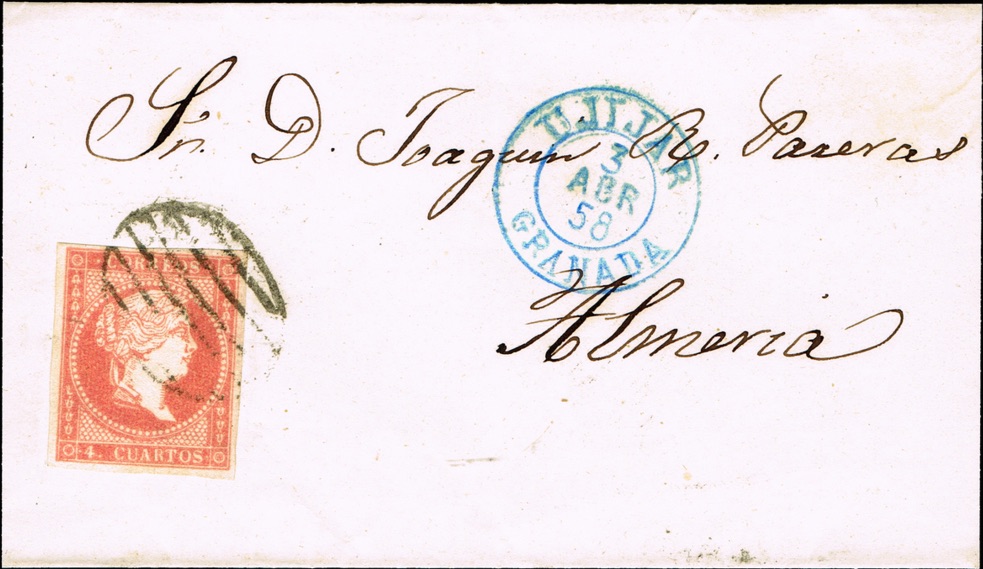 Sr. D. Joaquin R. Pareras
UJIJAR
3
ABR
58
GRANADA
Almeria
CORREOS
4. CUARTOS